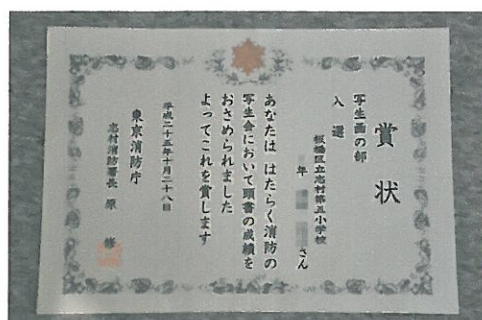 賞状
写生画の部
入選
板橋区立志村第五小学校
年 さん
あなたは はたらく消防の
写生会において頭書の成績を
おさめられました
よってこれを賞します
平成二十五年十月二十八日
東京消防庁
志村消防署長 原 修